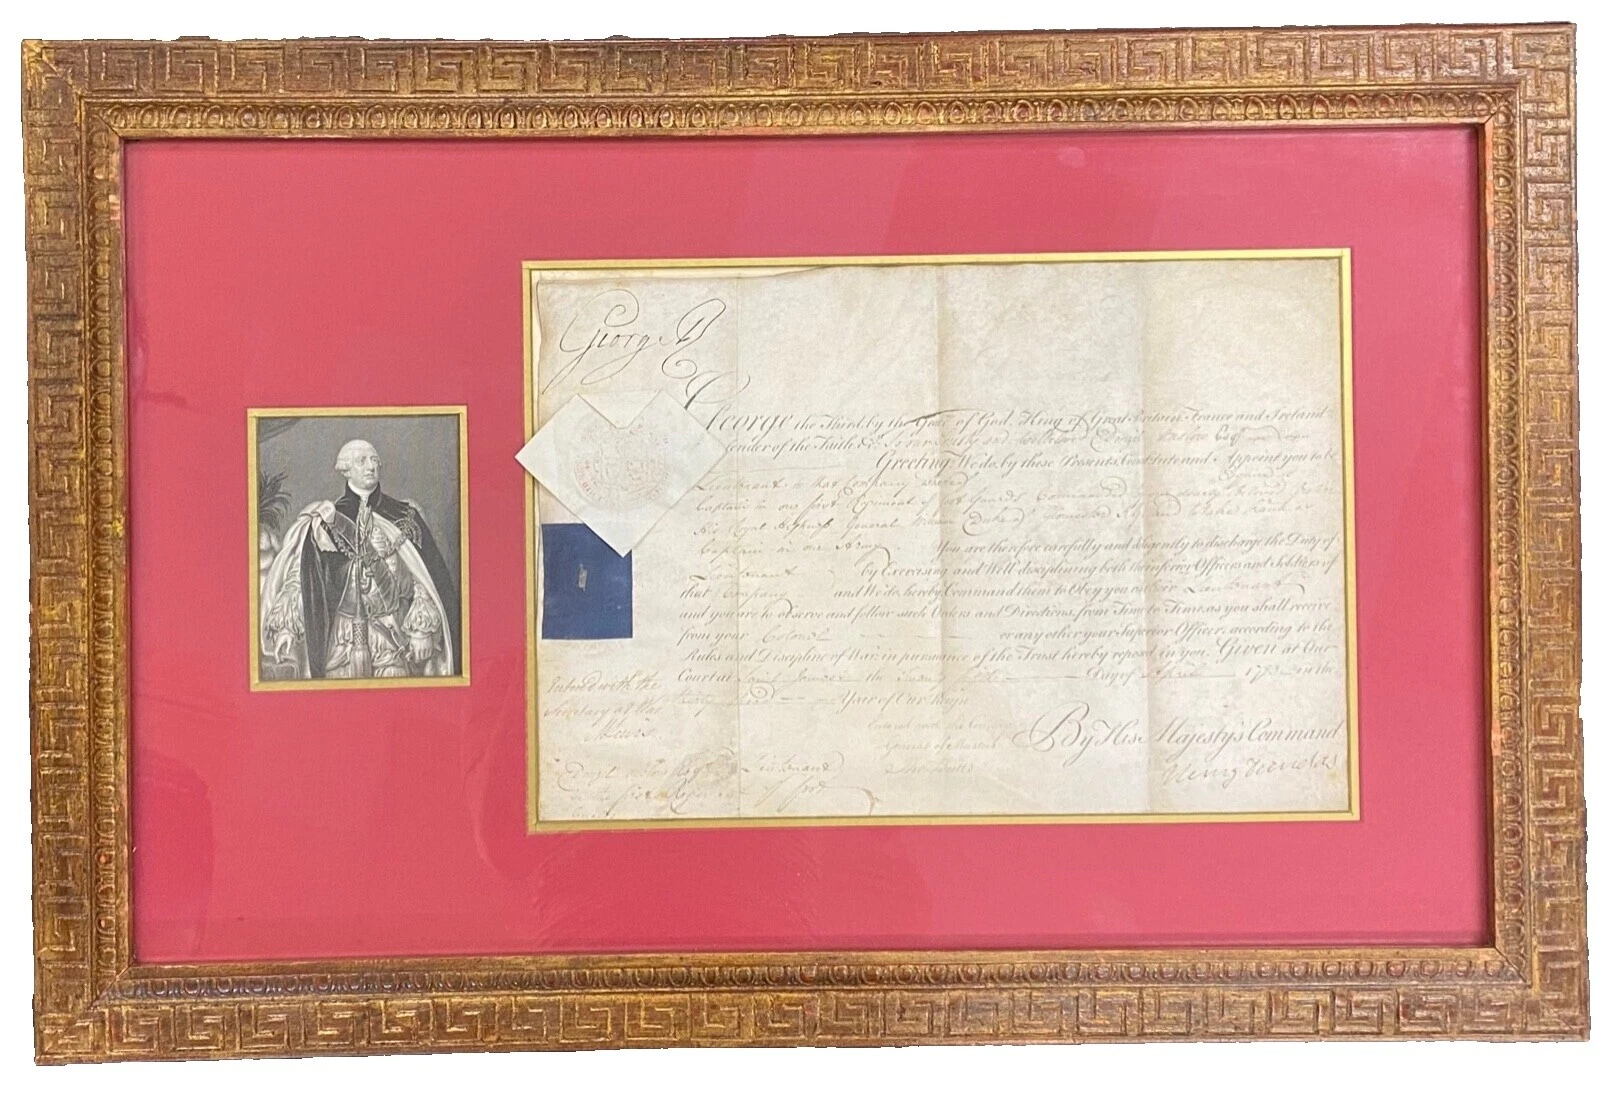 George R
George the Third, by the Grace of God, King of Great-Britain, France and Ireland,
fender of the Faith &c. To our Trusty and Esqr
Greeting: We do, by these Presents, Constitute and Appoint you to be
Lieutenant in that Company whereof
Captain in our first Regiment of foot Guards Commanded by our dearly beloved
His Royal Highness General William Duke of and to take Rank as
Captain in our Army. You are therefore carefully and diligently to discharge the Duty of
Lieutenant by Exercising and Well-disciplining both the inferior Officers and Soldiers of
that Company and We do hereby Command them to Obey you as their Lieutenant
and you are to observe and follow such Orders and Directions, from Time to Time, as you shall receive
from your Colonel or any other your Superior Officer, according to the
Rules and Discipline of War, in pursuance of the Trust hereby reposed in you. Given at Our
Court at Saint James's the Day of April 179 in the
thirty third Year of Our Reign
Entered with the
Secretary at War
M Lewis
Entered with the Commy
General of Musters
By His Majesty's Command
Henry Dundas
Esqr Lieutenant
in the first Regiment of foot